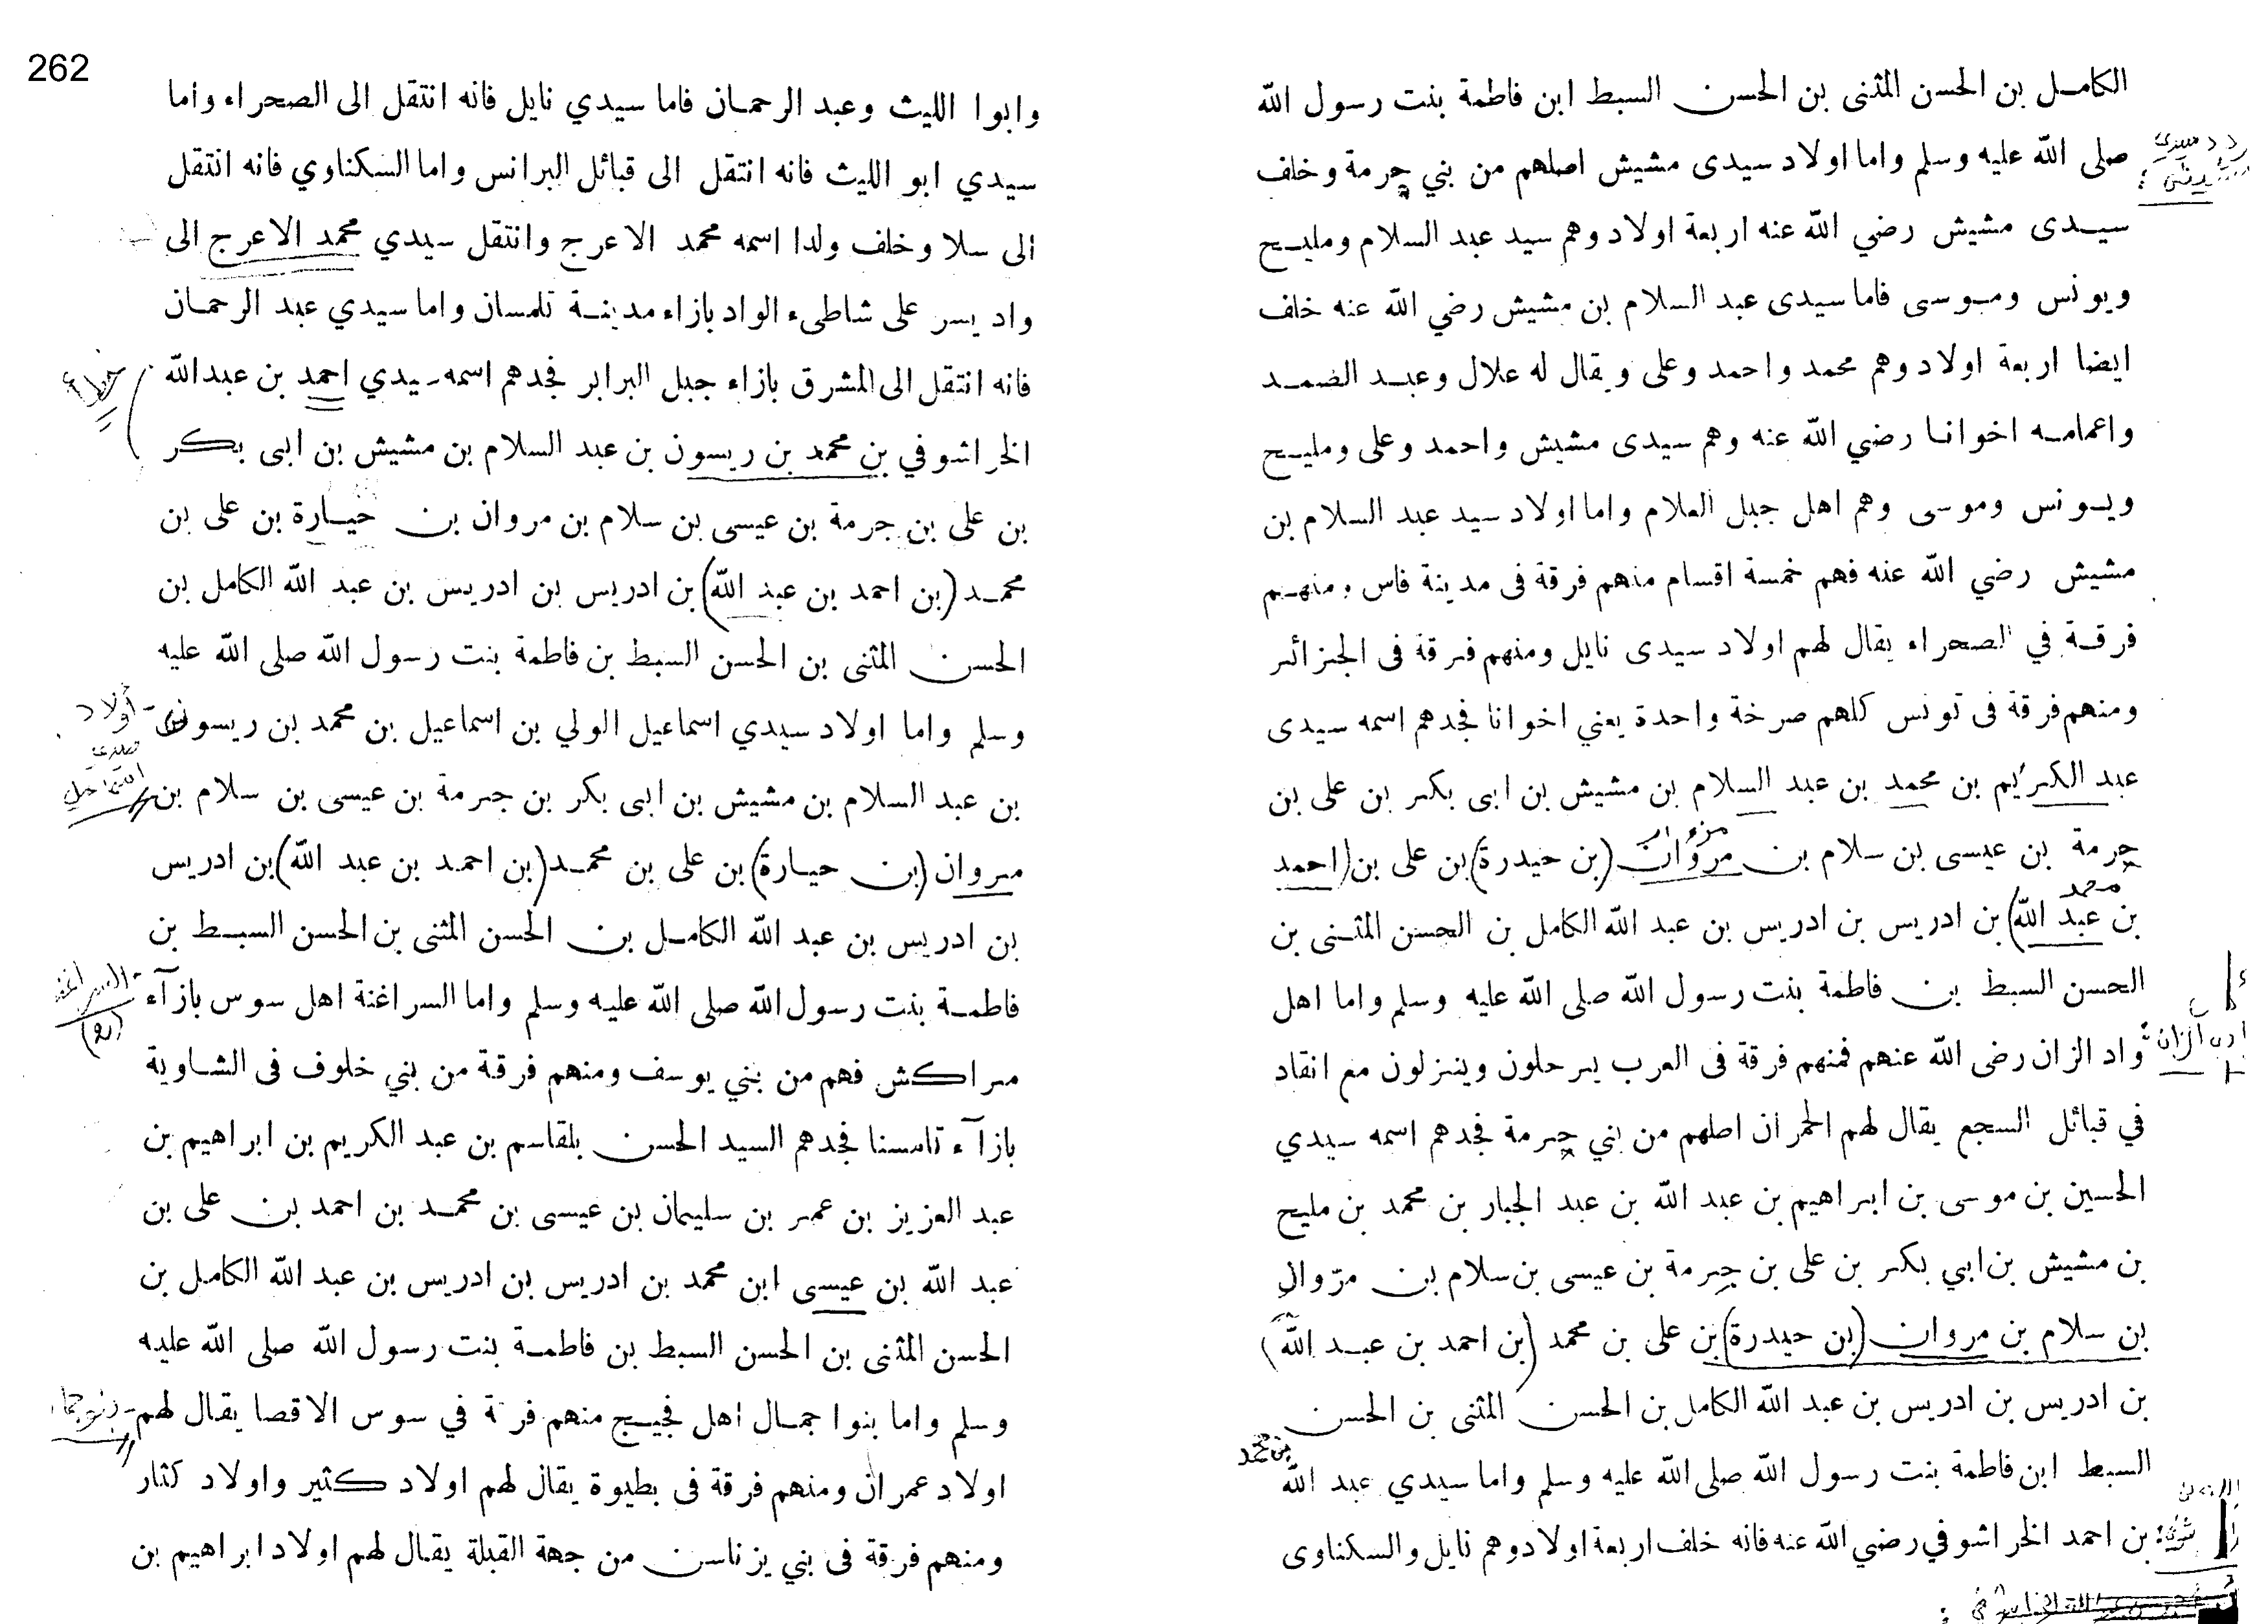 الكامل بن الحسن المثنى بن الحسن السبط ابن فاطمة بنت رسول الله
صلى الله عليه وسلم واما اولاد سيدى مشيش اصلهم من بني جرمة وخلف
سيدى مشيش رضي الله عنه اربعة اولاد وهم سيد عبد السلام ومليح
ويونس وموسى فاما سيدى عبد السلام بن مشيش رضي الله عنه خلف
ايضا اربعة اولاد وهم محمد واحمد وعلى ويقال له علال وعبد الضمد
واعمامه اخوانا رضي الله عنه وهم سيدى مشيش واحمد وعلى ومليح
ويونس وموسى وهم اهل جبل العلام واما اولاد سيد عبد السلام بن
مشيش رضي الله عنه فهم خمسة اقسام منهم فرقة فى مدينة فاس ومنهم
فرقة في الصحراء يقال لهم اولاد سيدى نايل ومنهم فرقة فى الجزائر
ومنهم فرقة فى تونس كلهم صرخة واحدة يعني اخوانا فجدهم اسمه سيدى
عبد الكريم بن محمد بن عبد السلام بن مشيش بن ابى بكر بن على بن
جرمة بن عيسى بن سلام بن مروان (بن حيدرة) بن على بن (احمد
محمد
بن عبد الله) بن ادريس بن ادريس بن عبد الله الكامل بن الحسن المثنى بن
الحسن السبط بن فاطمة بنت رسول الله صلى الله عليه وسلم واما اهل
واد الزان رضى الله عنهم فمنهم فرقة فى العرب يرحلون وينزلون مع انقاد
في قبائل السجع يقال لهم الحمران اصلهم من بني جرمة فجدهم اسمه سيدي
الحسين بن موسى بن ابراهيم بن عبد الله بن عبد الجبار بن محمد بن مليح
بن مشيش بن ابي بكر بن على بن جرمة بن عيسى بن سلام بن مزوال
بن سلام بن مروان (بن حيدرة) بن على بن محمد (بن احمد بن عبد الله)
بن ادريس بن ادريس بن عبد الله الكامل بن الحسن المثنى بن الحسن
السبط ابن فاطمة بنت رسول الله صلى الله عليه وسلم واما سيدي عبد الله
بن محمد
بن احمد الخراشوفي رضي الله عنه فانه خلف اربعة اولاد وهم نايل والسكناوى
262
وابوا الليث وعبد الرحمان فاما سيدي نايل فانه انتقل الى الصحراء واما
سيدي ابو الليث فانه انتقل الى قبائل البرانس واما السكناوي فانه انتقل
الى سلا وخلف ولدا اسمه محمد الاعرج وانتقل سيدي محمد الاعرج الى
واد يسر على شاطىء الواد بازاء مدينة تلمسان واما سيدي عبد الرحمان
فانه انتقل الى المشرق بازاء جبل البرابر فجدهم اسمه سيدي احمد بن عبد الله
الخراشوفي بن محمد بن ريسون بن عبد السلام بن مشيش بن ابى بكر
بن على بن جرمة بن عيسى بن سلام بن مروان بن حيارة بن على بن
محمد (بن احمد بن عبد الله) بن ادريس بن ادريس بن عبد الله الكامل بن
الحسن المثنى بن الحسن السبط بن فاطمة بنت رسول الله صلى الله عليه
وسلم واما اولاد سيدي اسماعيل الولي بن اسماعيل بن محمد بن ريسون
أولاد
بن عبد السلام بن مشيش بن ابى بكر بن جرمة بن عيسى بن سلام بن
مروان (بن حيارة) بن على بن محمد (بن احمد بن عبد الله) بن ادريس
بن ادريس بن عبد الله الكامل بن الحسن المثنى بن الحسن السبط بن
فاطمة بنت رسول الله صلى الله عليه وسلم واما السراغنة اهل سوس بازآء
السراغنة
مراكش فهم من بني يوسف ومنهم فرقة من بني خلوف فى الشاوية
بازآء تامسنا فجدهم السيد الحسن بلقاسم بن عبد الكريم بن ابراهيم بن
عبد العزيز بن عمر بن سليمان بن عيسى بن محمد بن احمد بن على بن
عبد الله بن عيسى ابن محمد بن ادريس بن ادريس بن عبد الله الكامل بن
الحسن المثنى بن الحسن السبط بن فاطمة بنت رسول الله صلى الله عليه
وسلم واما بنوا جمال اهل فجيج منهم فرقة في سوس الاقصا يقال لهم
اولاد عمران ومنهم فرقة فى بطيوة يقال لهم اولاد كثير واولاد كثار
ومنهم فرقة فى بني يزناسن من جهة القبلة يقال لهم اولاد ابراهيم بن